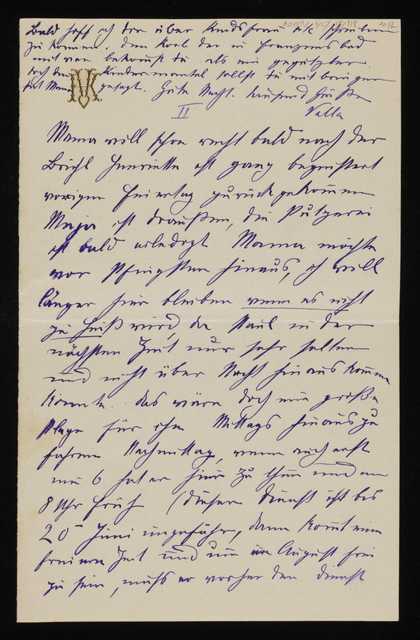 Bald hoff ich Dir über Kindsfrau etc schreiben
zu können. Den Korb der in Franzensbad
mit war bekommst du als ein
doch den Kindermantel sollst du mit bringen
hat Mama gesagt. Gute Nacht. Tausend Grüße
Valla
VK
II
Mama will schon recht bald nach der
Brühl Henriette ist ganz begeistert
vorigen Feiertag zurückgekommen
Major ist draußen, die Putzerei
ist bald erledigt Mama möchte
vor Pfingsten hinaus, ich will
länger hier bleiben wenn es nicht
zu heiß wird da Paul in der
nächsten Zeit nur sehr selten
und nicht über Nacht hinaus kommen
könnte. das wäre doch eine große
Plage für ihn Mittags hinaus zu
fahren Nachmittag wenn auch erst
um 6 hat er hier zu thun und um
8 Uhr früh (dieser Dienst ist bis
20 Juni ungefähr, dann kommt eine
freiere Zeit und um im August frei
zu sein, muß er vorher den Dienst